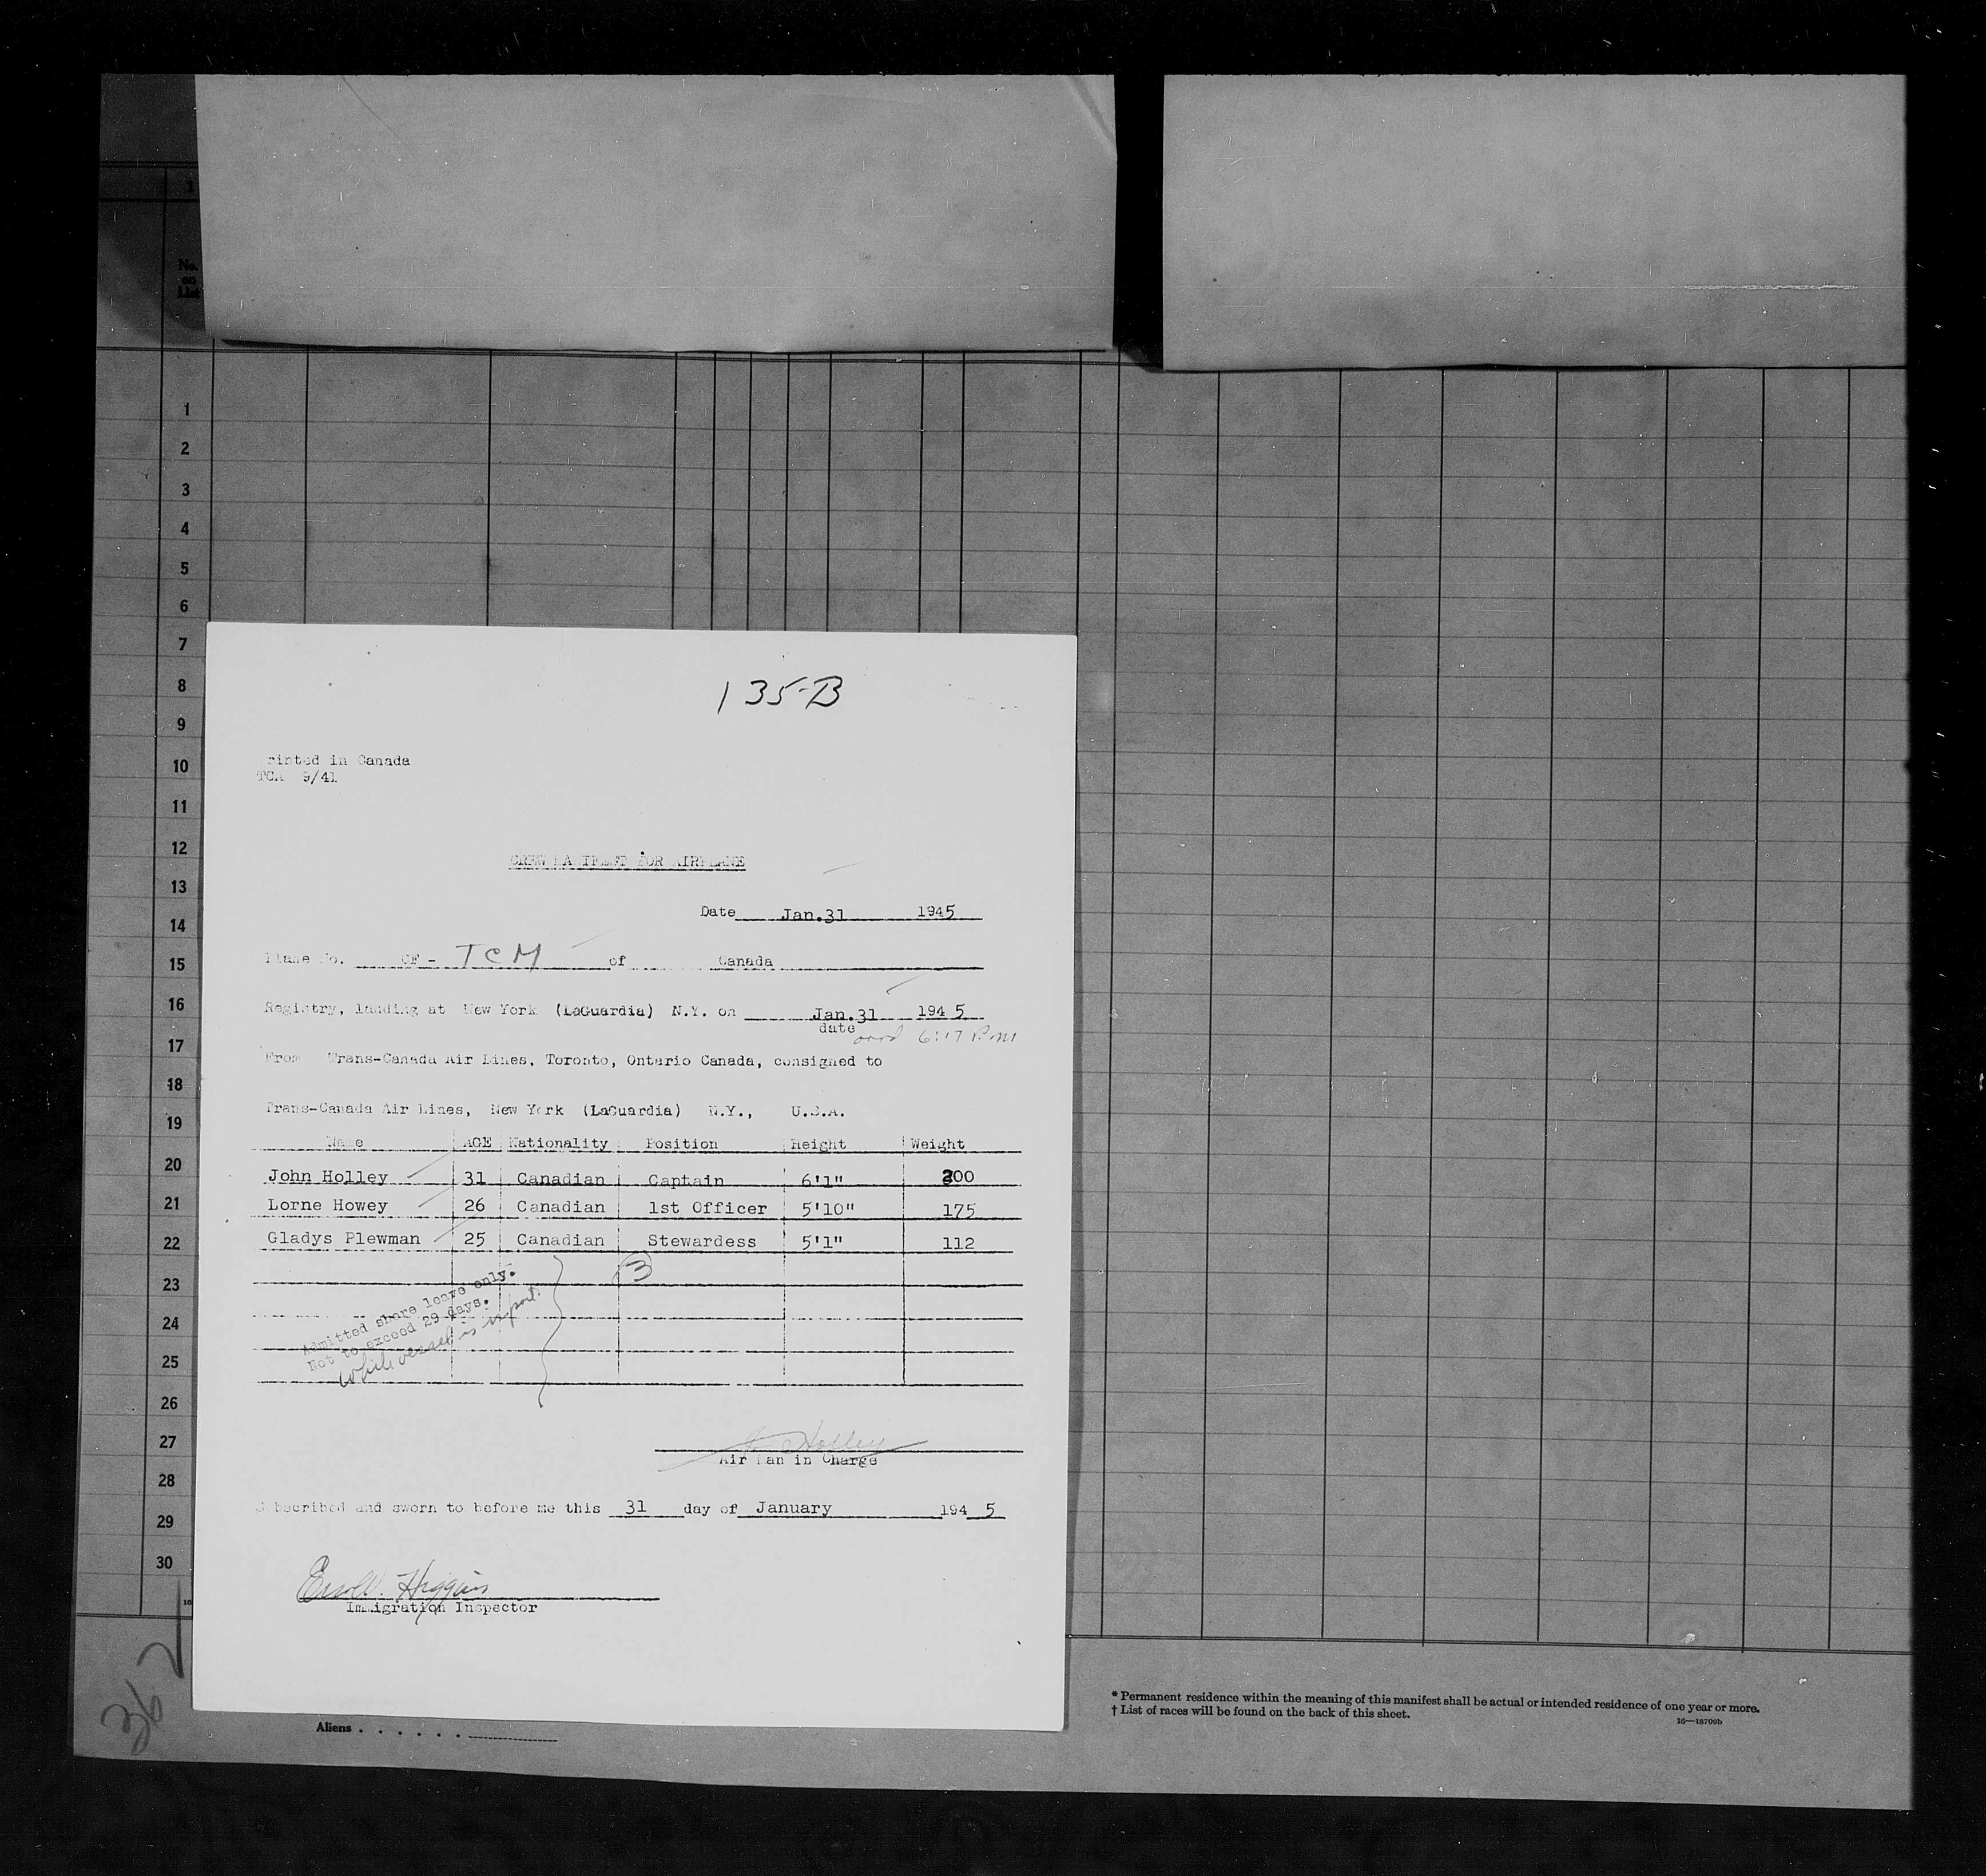 1
No.
on
List
1
2
3
4
5
6
7
8
9
10
11
12
13
14
15
16
17
18
19
20
21
22
23
24
25
26
27
28
29
30
135-B
rinted in Canada
TCA 9/41
CREW MANIFEST FOR AIRPLANE
Date Jan.31 1945
Plane No. CF- TCM of Canada
Registry, landing at New York (LaGuardia) N.Y. on Jan.31 1945
date
6:17 P.M
From Trans-Canada Air Lines, Toronto, Ontario Canada, consigned to
Trans-Canada Air Lines, New York (LaGuardia) N.Y., U.S.A.
Name AGE Nationality Position Height Weight
John Holley 31 Canadian Captain 6'1" 200
Lorne Howey 26 Canadian 1st Officer 5'10" 175
Gladys Plewman 25 Canadian Stewardess 5'1" 112
3
Admitted shore leave only.
Not to exceed 29 days.
while vessel is in port.
Holley
Air Man in Charge
Subscribed and sworn to before me this 31 day of January 1945
Higgins
Immigration Inspector
362
Aliens . . . . . .
* Permanent residence within the meaning of this manifest shall be actual or intended residence of one year or more.
† List of races will be found on the back of this sheet.
16—18709b